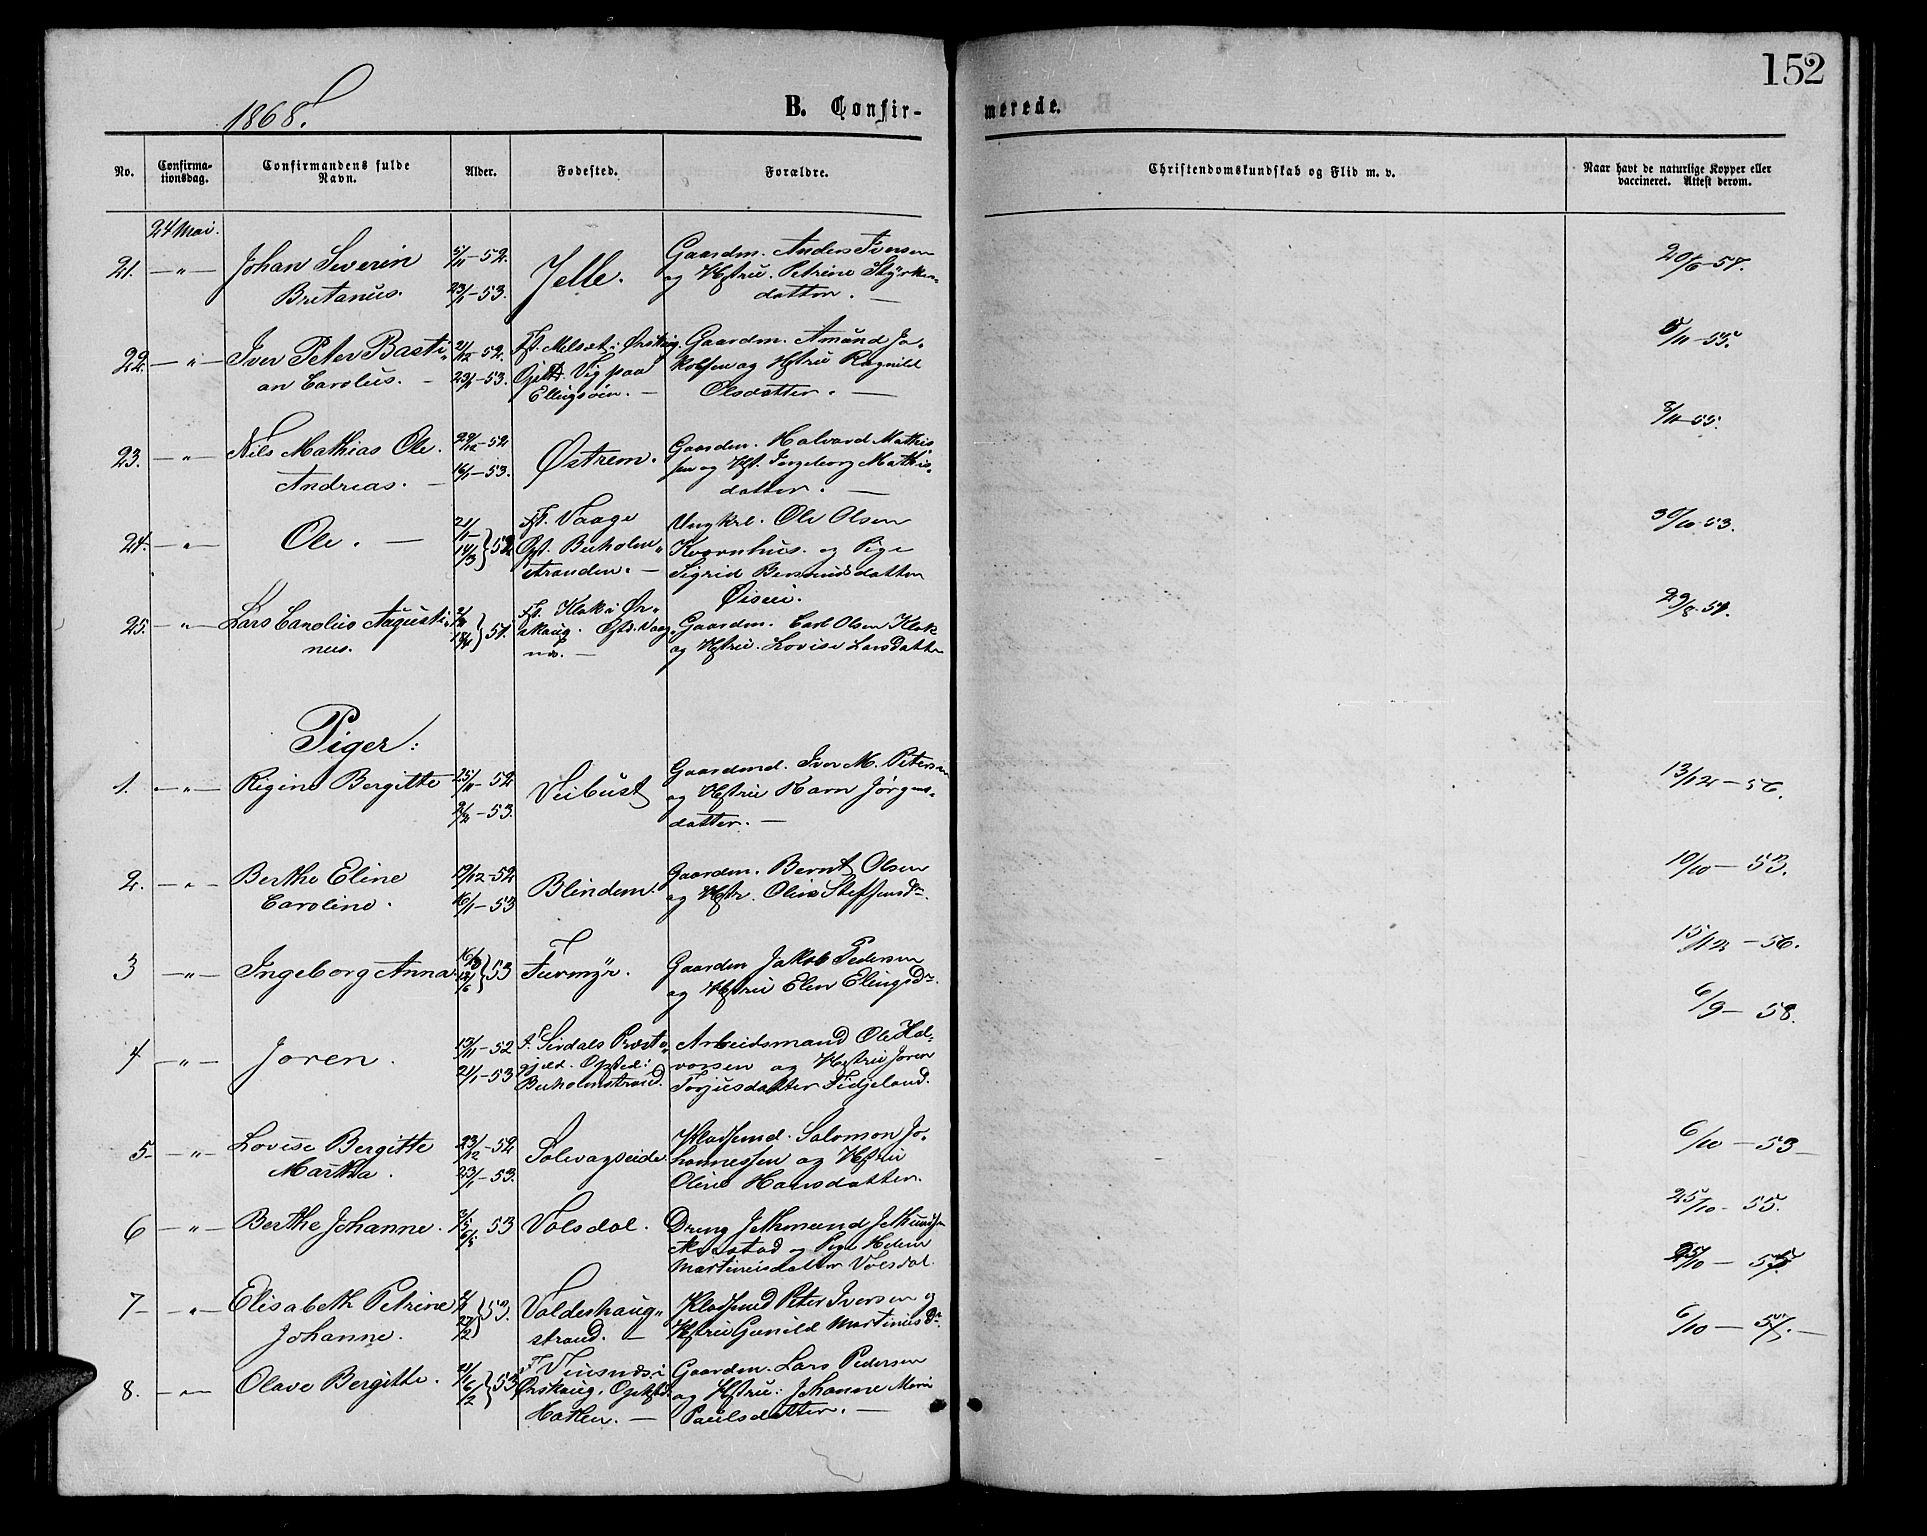 152
1868.
B. Confir-
merede.
No.
Confirma-
tionsdag.
Confirmandens fulde
Navn.
Alder.
Fødested.
Forældre.
Christendomskundskab og Flid m. v.
Naar havt de naturlige Kopper eller
vaccineret. Attest derom.
24 Mai.
21. —„— Johan Severin
Bretanus.
5/11-52.
23/1-53.
Jelle.
Gaardm. Anders Iversen
og Hstru. Petrine Styrker-
datter. —
20/6-57.
22. —„— Iver Peter Basti-
an Carolus. —
21/12-52.
23/1-53.
Ft. Melset i Ørskug.
Opst. Vig paa
Ellingsøen. —
Gaardm. Amund Ja-
kobsen og Hstru Ragnild
Olsdatter. —
5/11-55.
23. —„— Nils Mathias Ole
Andreas. —
29/12-52
16/1-53.
Østrem.
Gaardm. Halvard Mathis-
sen og Hst. Ingeborg Mathis-
datter. —
8/11-55.
24. —„— Ole. —
21/1-
14/3 } 52
Ft. Vaage
Opst. Buholm-
stranden. —
Ungkrl. Ole Olsen
Kvernhus. og Pige
Sigrid Bersvendsdatter
Øisæi.
30/10-53.
25. —„— Lars Carolus Augusti-
nus.
} 51.
Ft. Klok i Ør-
skaug. Opst. Vaag-
nes. —
Gaardm. Carl Olsen Klok
og Hstru. Lovise Larsdatter
29/8-54.
Piger:
1. —„— Rigine Bergitte
25/11-52
2/2-53.
Veibust
Gaardmd. Iver M. Petersen
og Hstru Karn Jørgens-
datter. —
13/12-56.
2. —„— Berthe Eline
Caroline.
19/12-52
16/1-53
Blindem.
Gaardm. Bernt Olsen
og Hstr. Oline Steffensdr.
10/10-53.
3 —„— Ingeborg Anna.
} 53
Furmyr.
Gaardm Jakob Pedersen
og Hstru Elen Elingsdr.
15/12-56.
4 —„— Joren.
13/11-52
21/1-53
F. Sirdals Præste-
gjeld. Opsted:
Buholmstrand.
Arbeidsmand Ole Hal-
vorsen og Hstru Joren
Torjusdatter Fidjeland.
6/9-58.
5- —„— Lovise Bergitte
Martha.
23/12-52
23/1-53.
Solevagseide
Pladsmd. Salomon Jo-
hannessen og Hstru
Oline Hansdatter.
6/10-53—
6 —„— Berthe Johanne.
53
Volsdal.
Dreng Jethmund Jethmundsen
og Pige Helene
Martinusdatter Volsdal.
25/10-55.
7- —„— Elisabeth Petrine
Johanne.
} 53.
Valderhaug-
strand. —
Pladsmd Peter Iversen og
Hstru Gunild Martinusdr.
25/10-55.
8. —„— Olave Bergitte.
} 53
F. Viusnes i
Ørskaug. Opst.
Hatlen. —
Gaardm. Lars Pedersen
og Hstru: Johanne Marie
Paulsdatter. —
6/10-57.—